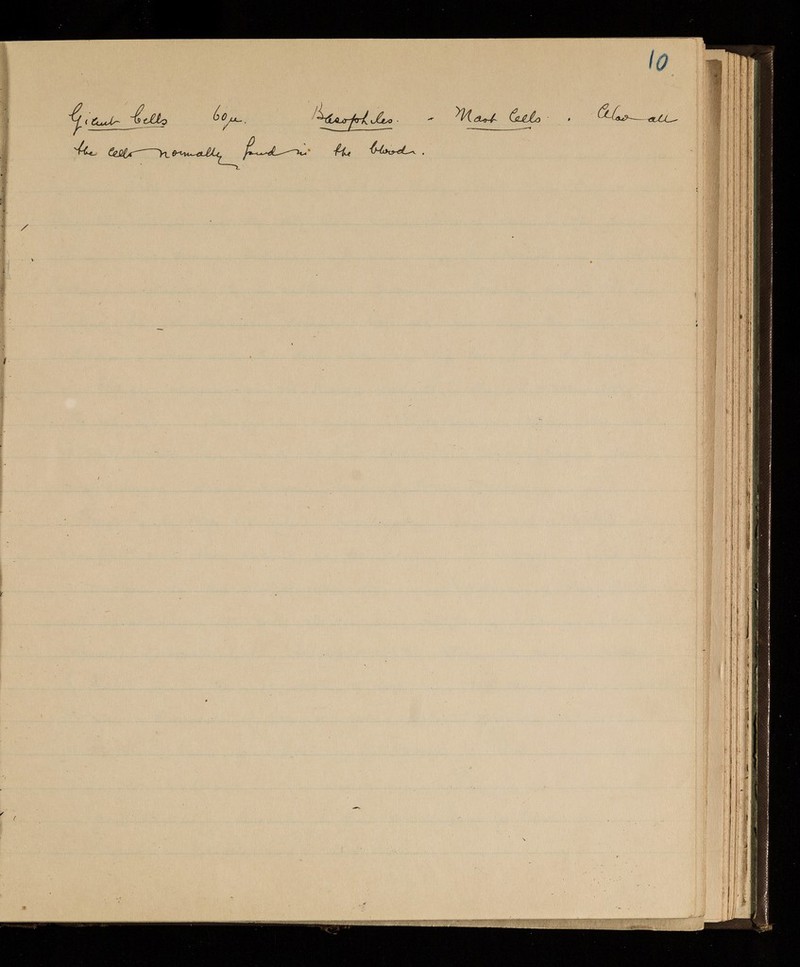 10
Giant Cells 60μ. Basophiles. - Mast Cells. Also all
the cells normally found in the blood.